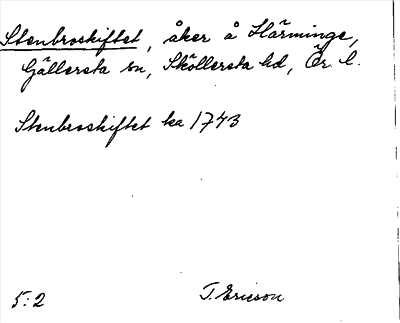 Stenbroskiftet, åker å Härminge,
Gällersta sn, Sköllersta hd, Ör. l.
Stenbroskiftet ka 1743
5:2
T. Ericson